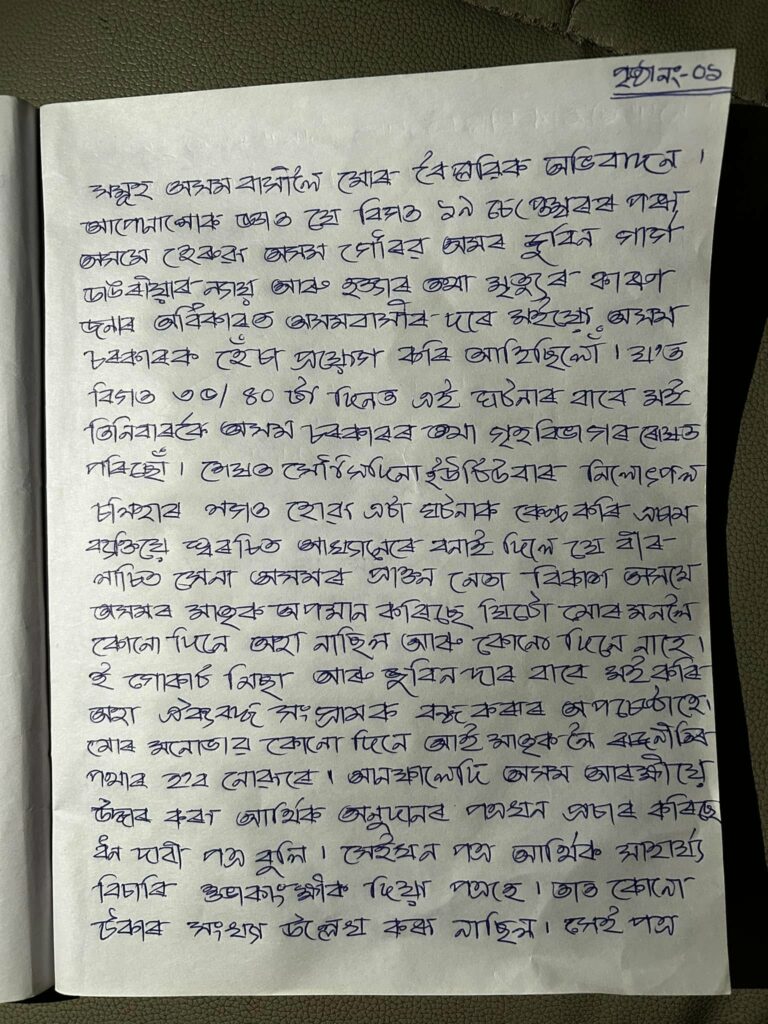 পৃষ্ঠা নং-০১
সমূহ অসমবাসীলৈ মোৰ বৈপ্লৱিক অভিবাদন ।
আপোনালোক জ্ঞাত যে বিগত ১৯ চেপ্তেম্বৰৰ পৰা
অসমে হেৰুৱা অসম গৌৰৱ অমৰ জুবিন গাৰ্গ
ডাঙৰীয়াৰ ন্যায় আৰু হত্যাৰ তথা মৃত্যুৰ কাৰণ
জনাৰ অধিকাৰত অসমবাসীৰ দৰে ময়ো অসম
চৰকাৰক হেঁচা প্ৰয়োগ কৰি আহিছিলোঁ । য'ত
বিগত ৩০/ ৪০ টা দিনত এই ঘটনাৰ বাবে মই
তিনিবাৰকৈ অসম চৰকাৰৰ তথা গৃহ বিভাগৰ ৰোষত
পৰিছোঁ । শেষত সৌ সিদিনা ইউটিউবাৰ নিলোৎপল
চলিহাৰ লগত হোৱা এটা ঘটনাক কেন্দ্ৰ কৰি এজন
ব্যক্তিয়ে স্বৰচিত আখ্যানেৰে বনাই দিলে যে বীৰ
লাচিত সেনা অসমৰ প্ৰাক্তন নেতা বিকাশ অসমে
অসমৰ মাতৃক অপমান কৰিছে যিটো মোৰ মনলৈ
কোনো দিনে অহা নাছিল আৰু কোনো দিনে নাহে ।
ই গোটেই মিছা আৰু জুবিন দাৰ বাবে মই কৰি
অহা ঐক্যবদ্ধ সংগ্ৰামক বন্ধ কৰাৰ অপচেষ্টাহে ।
মোৰ মনোভাৱ কোনো দিনে আই মাতৃক লৈ ৰাজনীতিৰ
পমাৰ হ'ব নোৱাৰে । আনকালেদি অসম আৰক্ষীয়ে
উদ্ধাৰ কৰা আৰ্থিক অনুদানৰ পত্ৰখন প্ৰচাৰ কৰিছে
ধন দাবী পত্ৰ বুলি । সেইখন পত্ৰ আৰ্থিক সাহাৰ্য্য
বিচাৰি শুভাকাংক্ষীক দিয়া পত্ৰহে । তাত কোনো
টকাৰ সংখ্যা উল্লেখ কৰা নাছিল । সেই পত্ৰ